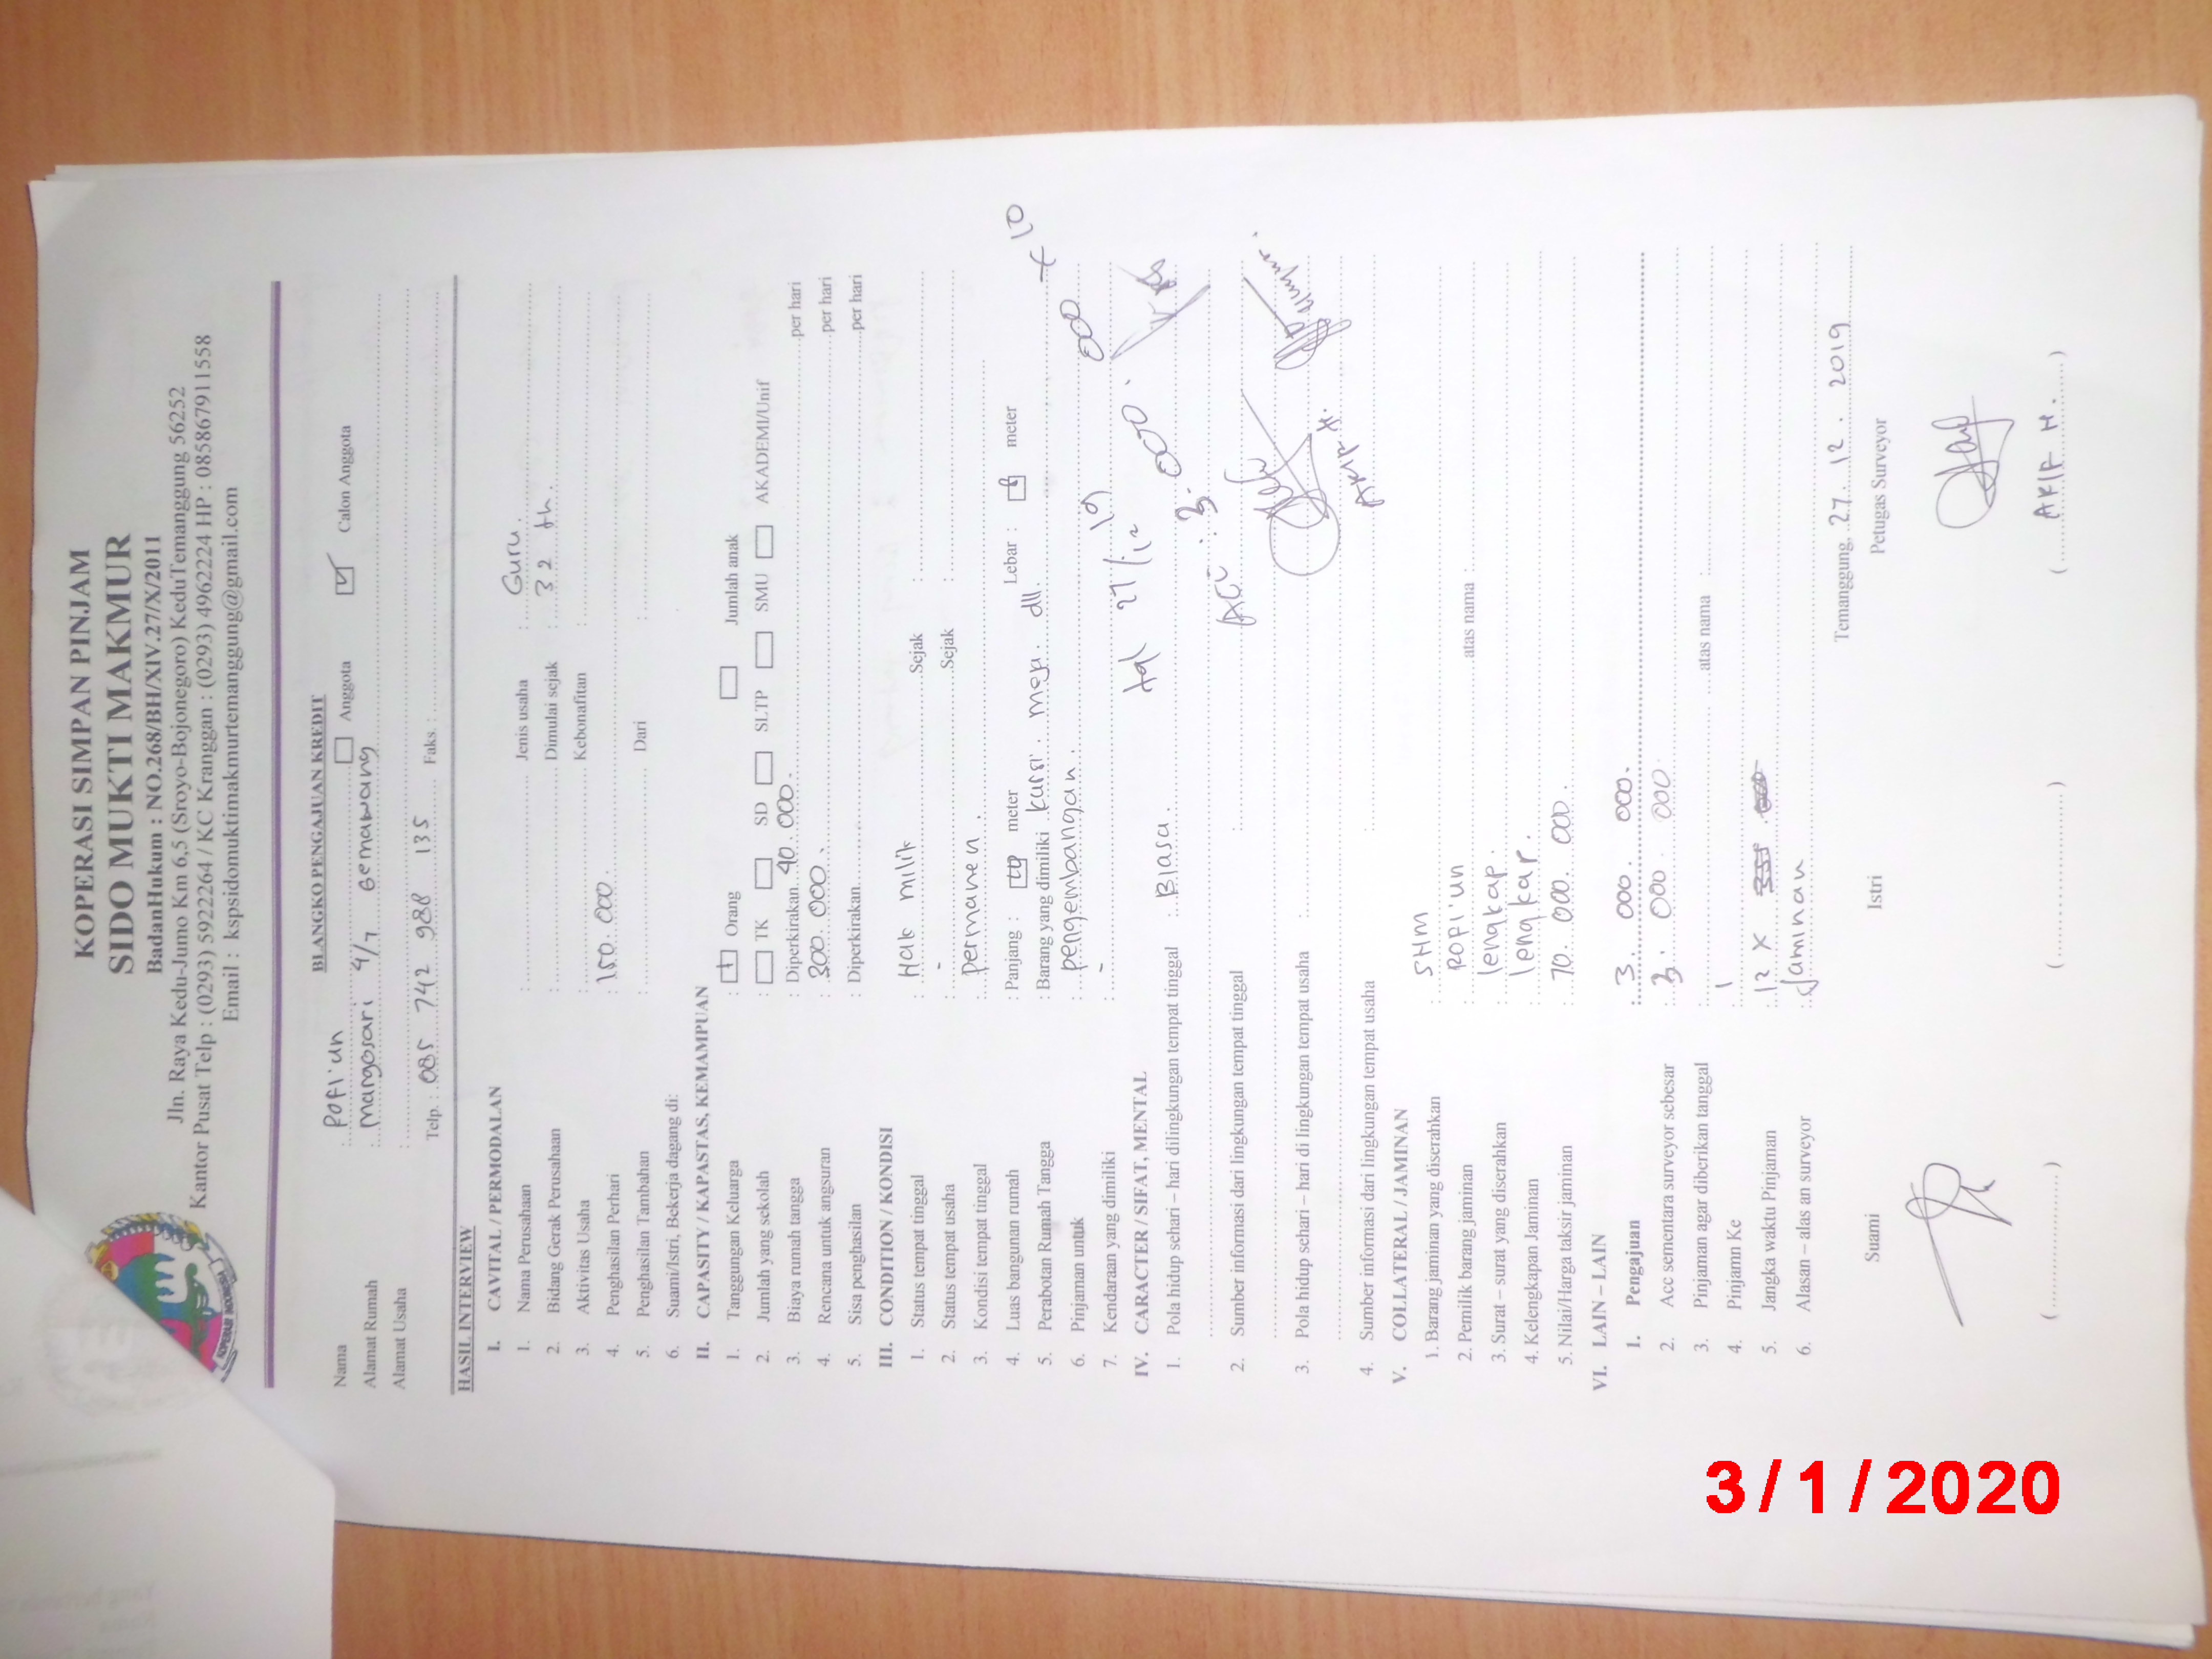 KOPERASI SIMPAN PINJAM
SIDO MUKTI MAKMUR
BadanHukum : NO.268/BH/XIV.27/X/2011
Jln. Raya Kedu-Jumo Km 6,5 (Sroyo-Bojonegoro) KeduTemanggung 56252
Kantor Pusat Telp : (0293) 5922264 / KC Kranggan : (0293) 4962224 HP : 085867911558
Email : kspsidomuktimakmurtemanggung@gmail.com
KOPERASI INDONESIA
BLANGKO PENGAJUAN KREDIT
Nama : Rofi'un Anggota Calon Anggota
Alamat Rumah : Mangosari 4/7 Gemawang
Alamat Usaha :
Telp. : 085 742 988 135 Faks. :
HASIL INTERVIEW
I. CAVITAL / PERMODALAN
1. Nama Perusahaan : Jenis usaha : Guru.
2. Bidang Gerak Perusahaan : Dimulai sejak : 32 th.
3. Aktivitas Usaha : Kebonafitan :
4. Penghasilan Perhari : 150.000.
5. Penghasilan Tambahan : Dari :
6. Suami/Istri, Bekerja dagang di:
II. CAPASITY / KAPASTAS, KEMAMPUAN
1. Tanggungan Keluarga : Orang Jumlah anak
2. Jumlah yang sekolah : TK SD SLTP SMU AKADEMI/Unif
3. Biaya rumah tangga : Diperkirakan 40.000. per hari
4. Rencana untuk angsuran : 300.000. per hari
5. Sisa penghasilan : Diperkirakan per hari
III. CONDITION / KONDISI
1. Status tempat tinggal : Hak milik Sejak :
2. Status tempat usaha : - Sejak :
3. Kondisi tempat tinggal : permanen.
4. Luas bangunan rumah : Panjang : meter Lebar : meter
5. Perabotan Rumah Tangga : Barang yang dimiliki kursi meja. dll. x 10
6. Pinjaman untuk : pengembangan.
7. Kendaraan yang dimiliki : -
tgl 27/12 19
IV. CARACTER / SIFAT, MENTAL
1. Pola hidup sehari – hari dilingkungan tempat tinggal : Biasa.
Acc : 3. 000. 000
2. Sumber informasi dari lingkungan tempat tinggal :
3. Pola hidup sehari – hari di lingkungan tempat usaha :
ARIF H.
4. Sumber informasi dari lingkungan tempat usaha :
V. COLLATERAL / JAMINAN
1. Barang jaminan yang diserahkan : SHM
2. Pemilik barang jaminan : Rofi'un atas nama :
3. Surat – surat yang diserahkan : lengkap.
4. Kelengkapan Jaminan : lengkap.
5. Nilai/Harga taksir jaminan : 70. 000. 000.
VI. LAIN – LAIN
1. Pengajuan : 3. 000. 000.
2. Acc sementara surveyor sebesar : 3. 000. 000.
3. Pinjaman agar diberikan tanggal : atas nama :
4. Pinjamn Ke : 1
5. Jangka waktu Pinjaman : 12 X
6. Alasan – alas an surveyor : Jaminan
Temanggung, 27. 12. 2019
Suami Istri Petugas Surveyor
(....................) (....................) (ARIF H.)
3/1/2020